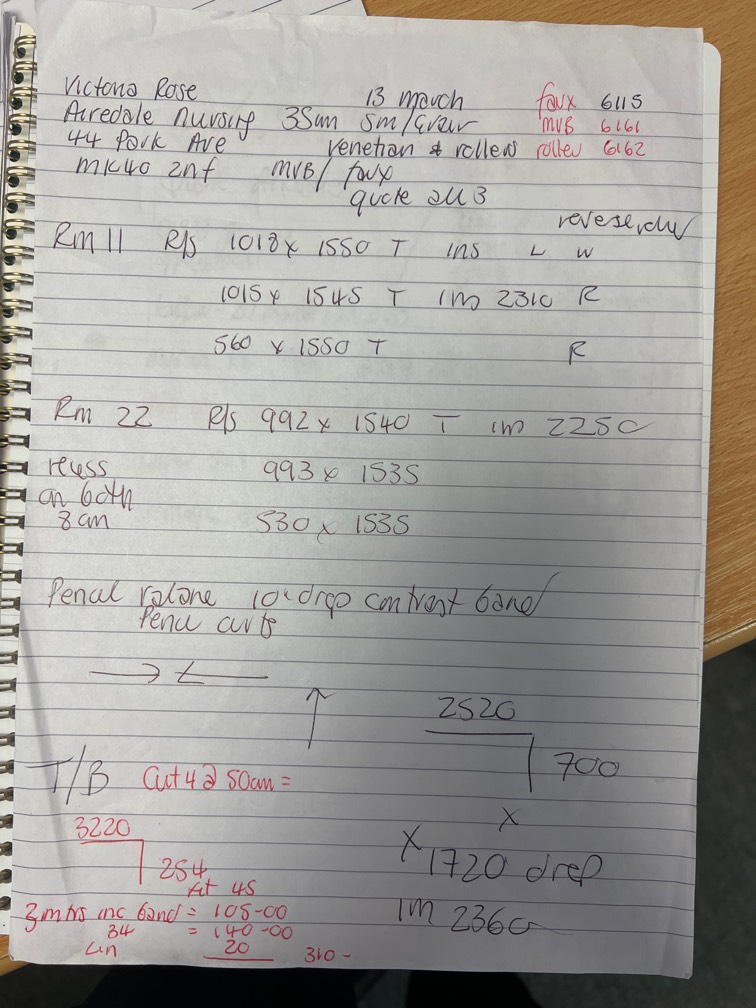 Victoria Rose 13 march faux 6115
Airedale Nursing 35mm 5m/Gvar MVB 6161
44 Park Ave Venetian & rollers roller 6162
MK40 2nf MVB/ faux
quote all 3
reverse
Rm 11 R/s 1018 x 1550 T ins L W
1015 x 1545 T im 2310 R
560 x 1550 T R
Rm 22 R/s 992 x 1540 T im 2250
recess 993 x 1535
on both
8 cm 530 x 1535
Pencil 10" drop contrast band
Pencil
2520
700
T/B Cut 4 @ 50cm =
3220
254
x
x 1720 drop
At 45
3 mtrs inc band = 105-00
im 2360
34 = 140-00
Lin 20 310 -